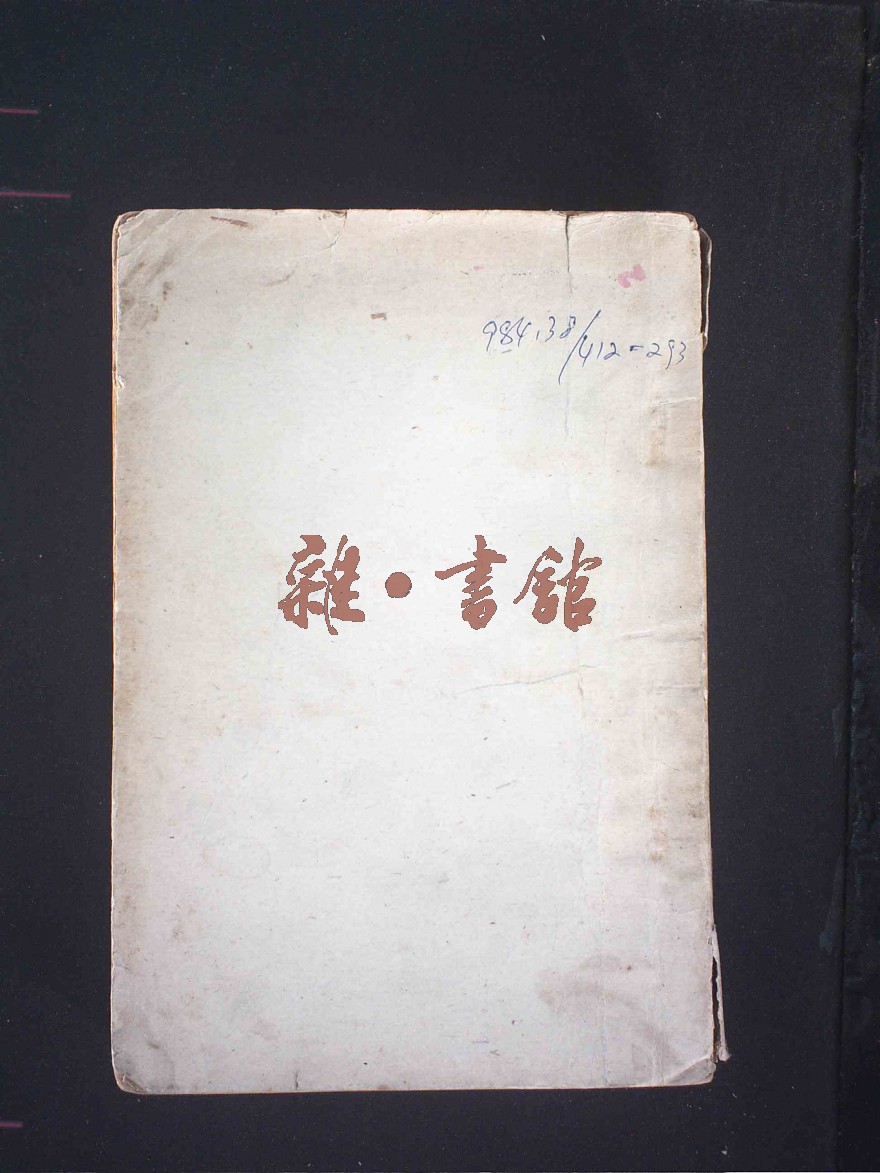 984.38/412-293
雜·書館